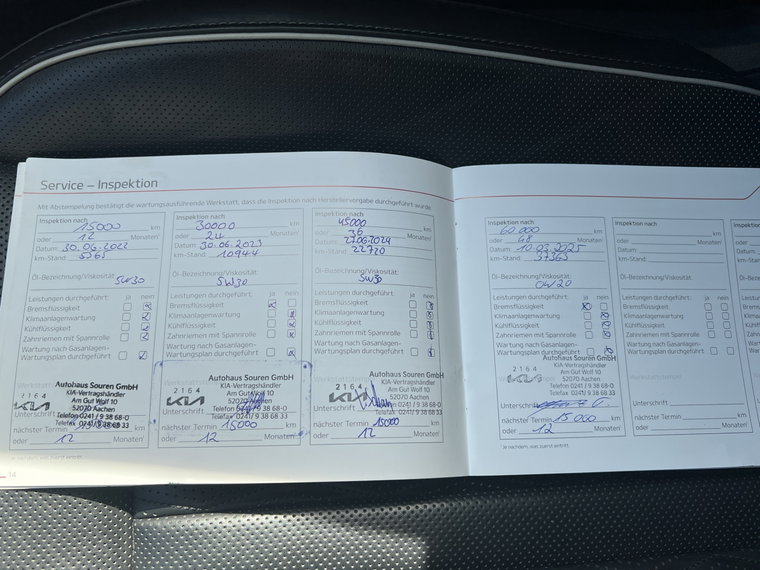 Service – Inspektion
Mit Abstempelung bestätigt die wartungsausführende Werkstatt, dass die Inspektion nach Herstellervorgabe durchgeführt wurde.
Inspektion nach
15000 km
oder 12 Monaten¹
Datum: 30.06.2022
km-Stand: 5365
Öl-Bezeichnung/Viskosität:
5W30
Leistungen durchgeführt: ja nein
Bremsflüssigkeit
Klimaanlagenwartung
Kühlflüssigkeit
Zahnriemen mit Spannrolle
Wartung nach Gasanlagen-
Wartungsplan durchgeführt
Autohaus Souren GmbH
KIA-Vertragshändler
2164 Am Gut Wolf 10
KIA 52070 Aachen
Unterschrift Telefon 0241/9 38 68-0
Telefax 0241/9 38 68 33
nächster Termin 15000 km
oder 12 Monaten¹
Inspektion nach
30000 km
oder 24 Monaten¹
Datum: 30.06.2023
km-Stand: 10944
Öl-Bezeichnung/Viskosität:
5W30
Leistungen durchgeführt: ja nein
Bremsflüssigkeit
Klimaanlagenwartung
Kühlflüssigkeit
Zahnriemen mit Spannrolle
Wartung nach Gasanlagen-
Wartungsplan durchgeführt
Autohaus Souren GmbH
KIA-Vertragshändler
2164 Am Gut Wolf 10
KIA 52070 Aachen
Unterschrift Telefon 0241/9 38 68-0
Telefax 0241/9 38 68 33
nächster Termin 15000 km
oder 12 Monaten¹
Inspektion nach
45000 km
oder 36 Monaten¹
Datum: 27.06.2024
km-Stand: 22720
Öl-Bezeichnung/Viskosität:
5W30
Leistungen durchgeführt: ja nein
Bremsflüssigkeit
Klimaanlagenwartung
Kühlflüssigkeit
Zahnriemen mit Spannrolle
Wartung nach Gasanlagen-
Wartungsplan durchgeführt
Autohaus Souren GmbH
KIA-Vertragshändler
2164 Am Gut Wolf 10
KIA 52070 Aachen
Unterschrift Telefon 0241/9 38 68-0
Telefax 0241/9 38 68 33
nächster Termin 15000 km
oder 12 Monaten¹
14
Inspektion nach
60 000 km
oder 48 Monaten¹
Datum: 10.03.2025
km-Stand: 37363
Öl-Bezeichnung/Viskosität:
0W20
Leistungen durchgeführt: ja nein
Bremsflüssigkeit
Klimaanlagenwartung
Kühlflüssigkeit
Zahnriemen mit Spannrolle
Wartung nach Gasanlagen-
Wartungsplan durchgeführt
Autohaus Souren GmbH
KIA-Vertragshändler
2164 Am Gut Wolf 10
KIA 52070 Aachen
Unterschrift
nächster Termin 15 000 km
oder 12 Monaten¹
¹Je nachdem, was zuerst eintritt.
Inspektion nach
km
oder Monaten¹
Datum:
km-Stand:
Öl-Bezeichnung/Viskosität:
Leistungen durchgeführt: ja nein
Bremsflüssigkeit
Klimaanlagenwartung
Kühlflüssigkeit
Zahnriemen mit Spannrolle
Wartung nach Gasanlagen-
Wartungsplan durchgeführt
Werkstattstempel
Unterschrift
nächster Termin km
oder Monaten¹